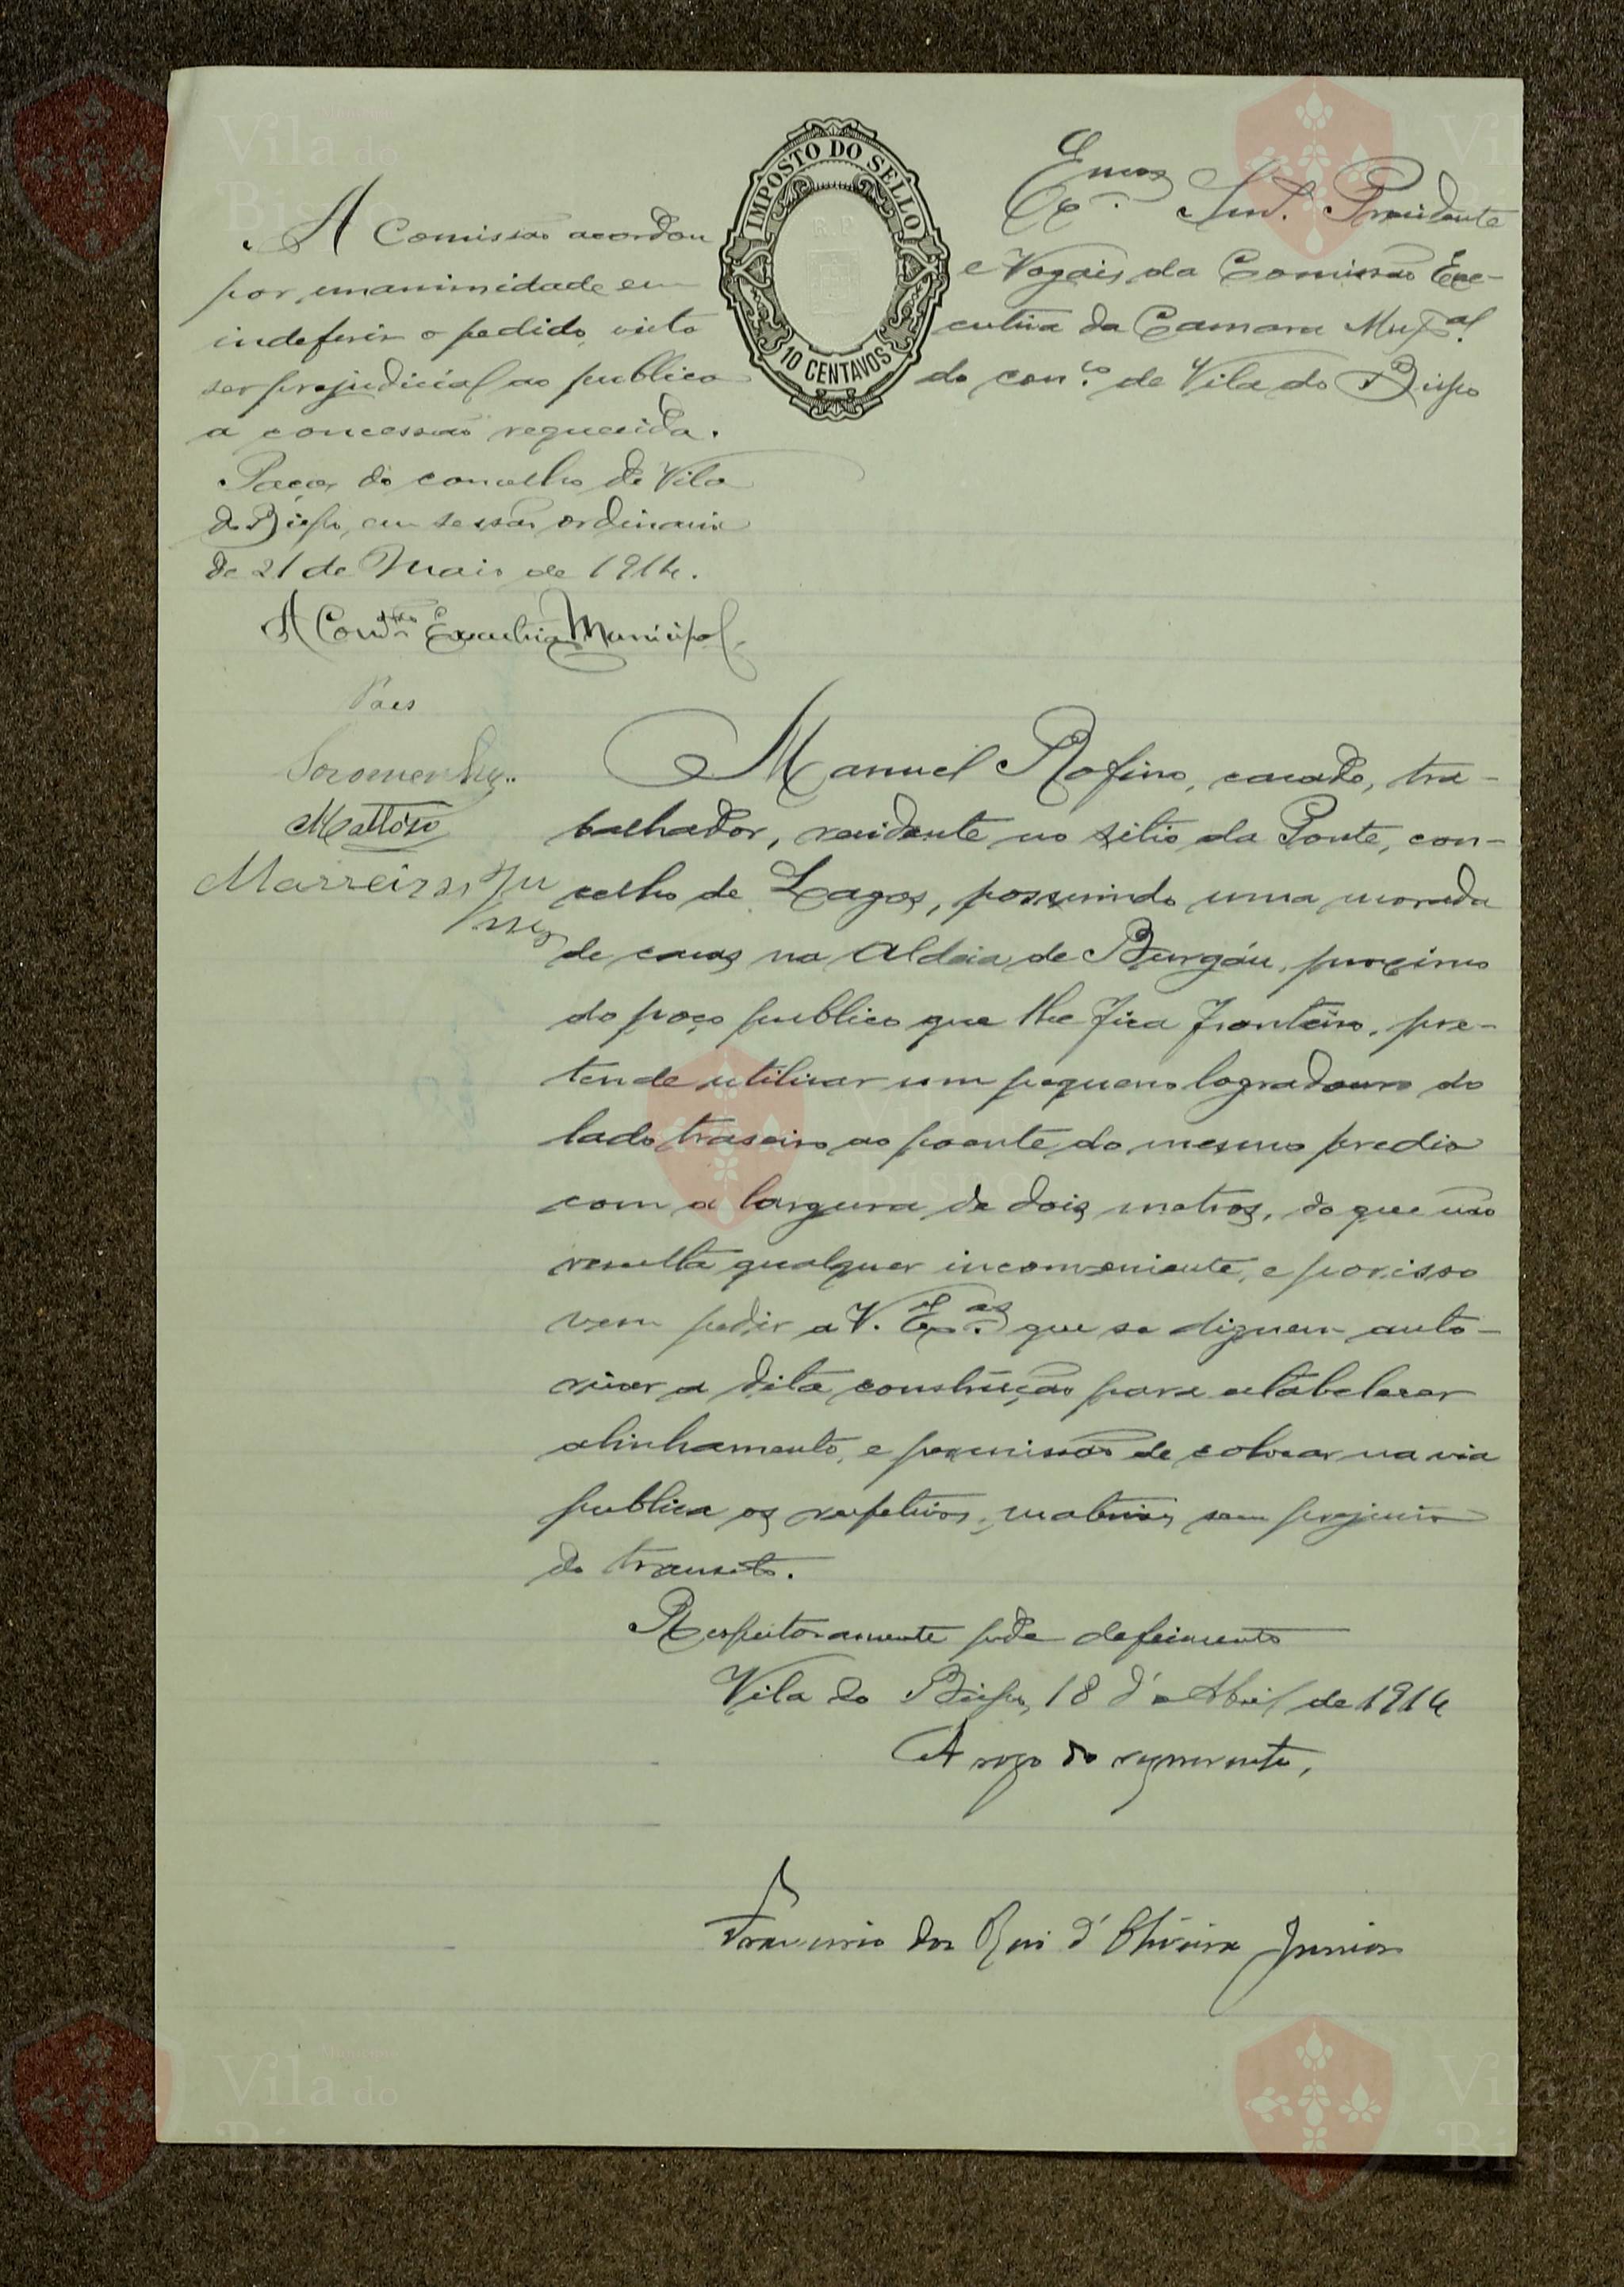 IMPOSTO DO SELLO
R. P.
10 CENTAVOS
Ex.mos Snrs. Presidente
e Vogais da Comissão Exe-
cutiva da Camara Mu.pal
do con.co de Vila do Bispo
A Comissão acordou
por unanimidade em
indeferir o pedido, visto
ser prejudicial ao publico
a concessão requerida.
Paços do concelho de Vila
do Bispo, em sessão ordinaria
de 21 de Maio de 1914.
A Com.ão Executiva Municipal,
Paes
Soromenho
Mattoso
Marreiros
Manuel Rofino, casado, tra-
balhador, residente no sitio da Ponte, con-
celho de Lagos, possuindo uma morada
de casas na Aldeia de Burgáu, proximo
do poço publico que lhe fica fronteiro, pre-
tende utilisar um pequeno logradouro do
lado traseiro ao poente do mesmo predio
com a largura de dois metros, do que não
resulta qualquer inconveniente, e por isso
vem pedir a V. Ex.as que se dignem auto-
risar a dita construção para estabelecer
alinhamento, e permissão de colocar na via
publica os respetivos materiais sem prejuiso
do transito.
Respeitosamente pede deferimento
Vila do Bispo, 18 d'Abril de 1914
A rogo do requerente,
Francisco dos Reis d'Oliveira Junior
Município
Vila do
Bispo